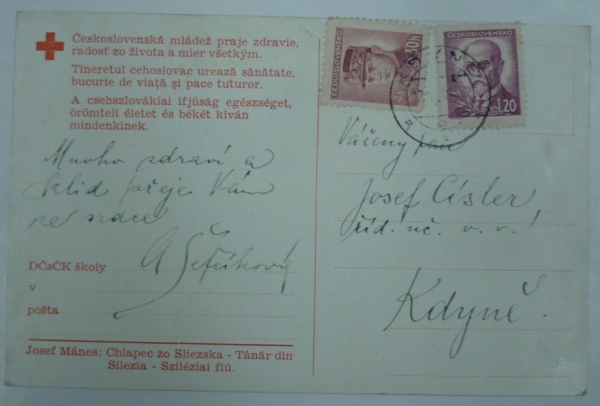 Československá mládež praje zdravie,
radosť zo života a mier všetkým.
Tineretul cehoslovac urează sănătate,
bucurie de viață și pace tuturor.
A csehszlovákiai ifjúság egészséget,
örömteli életet és békét kíván
mindenkinek.
Mnoho zdraví a
klid přeje Vám
ze srdce
A
DČsČK školy
v
pošta
Josef Mánes: Chlapec zo Sliezska - Tânăr din
Silezia - Sziléziai fiú.
ČESKOSLOVENSKO
30h
ČESKOSLOVENSKO
1.20
Vážený pan
Josef Císler
říd. uč. v. v.!
Kdyně.